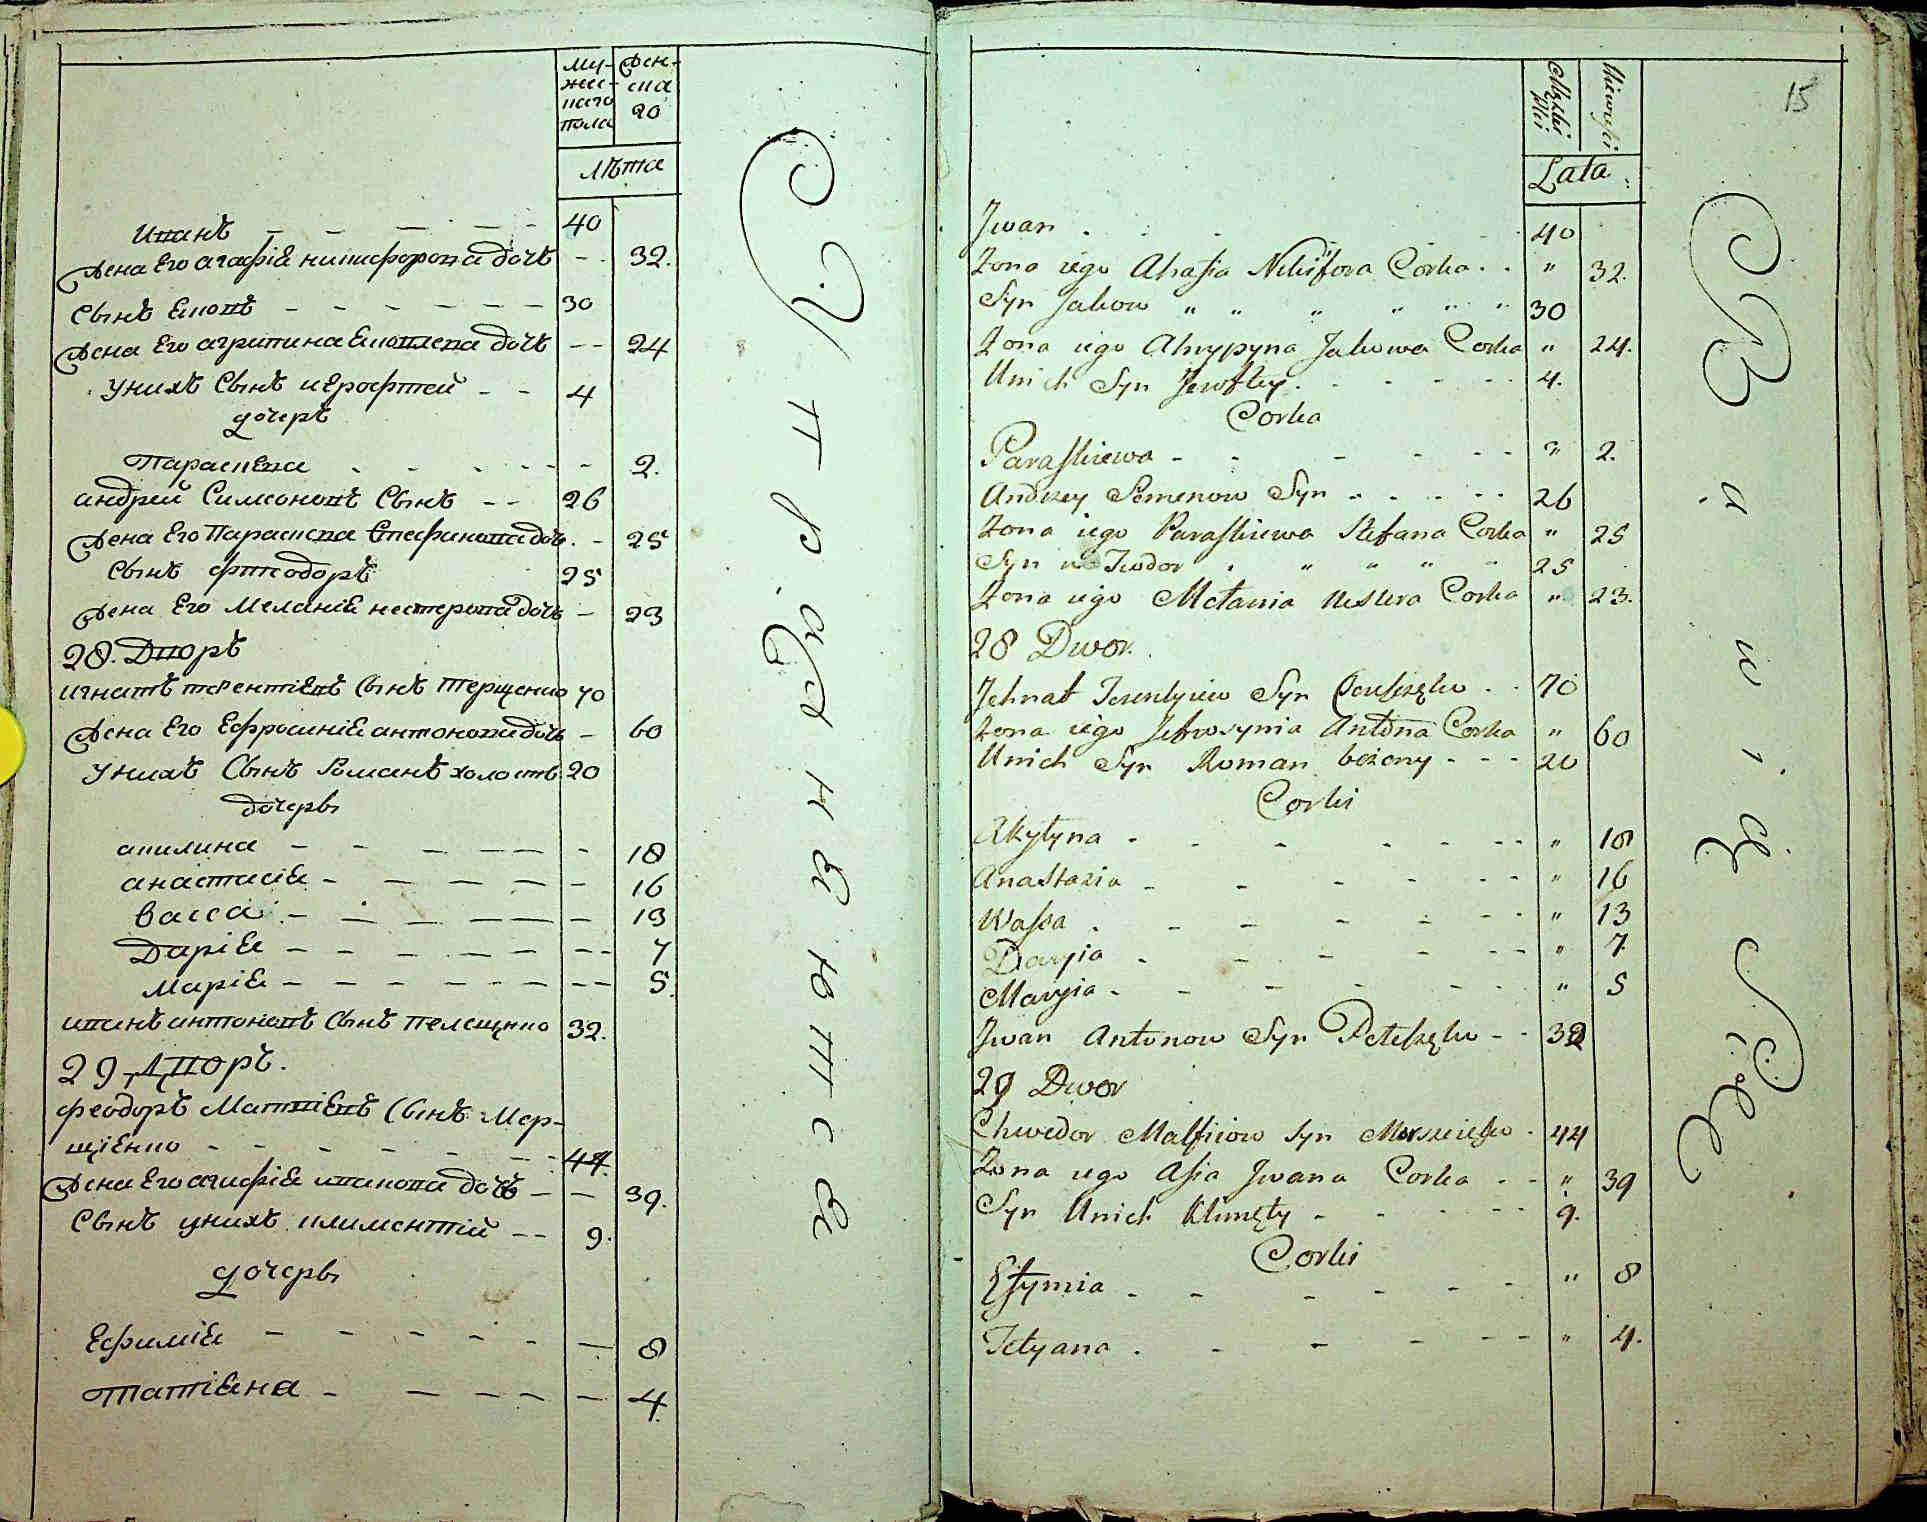 му-
жес-
каго
пола
жен-
ска
го
лѣта
иванъ - - - - - 40
жена Его агафіѣ никифорова дочь - - 32.
Сынъ Яковъ - - - - - - 30
жена Его агрипина Яковлева дочь - - 24
у нихъ Сынъ иерофтей - - 4
дочеръ
параскева - - - - - 2.
андрей Симеоновъ Сынъ - - 26
жена Его параскева Стефанова доч. - 25
Сынъ фтеодоръ 25
жена Его меланіѣ нестерова дочь - 23
28. Дворъ
игнатъ терентіевъ Сынъ терещенко 70
жена Его Ефросиніѣ антонова дочь - 60
у нихъ Сынъ романъ холостъ 20
дочеры
акилина - - - - - - 18
анастасіѣ - - - - - - 16
васса - - - - - - 13
даріѣ - - - - - - 7
маріѣ - - - - - - 5.
иванъ антоновъ Сынъ пелещенко 32.
29 дворъ.
феодоръ матвіевъ Сынъ мер-
щіенко - - - - - - 44.
жена Его агафіѣ иванова дочь - - 39.
Сынъ у нихъ климентій - - 9.
дочеры
Ефиміѣ - - - - - - 8
татіѣна - - - - - 4.
15
Męzkiei
Płci
Niewiesci
Lata
Jwan - - - 40
Zona iego Ahafia Nikifora Corka - - " 32.
Syn Jakow " " " " " " 30
Zona iego Ahrypyna Jakowa Corka " 24.
Unich Syn Jewftey - - - - - 4.
Corka
Paraskiewa - - - - - - " 2.
Andrzey Semenow Syn - - - - - 26
Zona iego Paraskiewa Stefana Corka " 25
Syn Teodor " " " " " 25
Zona iego Mełania Nestera Corka " 23.
28 Dwor.
Jehnat Terentyiew Syn - - 70
Zona iego Jefrosynia Antona Corka " 60
Unich Syn Roman bezeny - - - 20
Corki
Akyłyna - - - - - - " 18
Anastazia - - - - - - " 16
Wassa - - - - - - " 13
Daryia - - - - - - " 7.
Maryia - - - - - - " 5
Jwan Antonow Syn Pełeszęko - - 32
29 Dwor
Chwedor Matfiiow Syn - 44
Zona iego Afia Jwana Corka - - " 39
Syn Unich Klimęty - - - - - 9.
Corki
Efymia - - - - - - " 8
Tetyana - - - - - " 4.